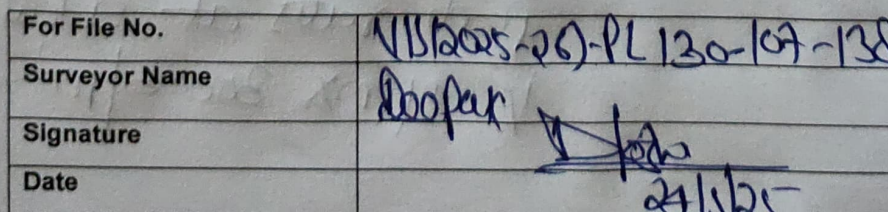 For File No. VIS(2025-26)-PL130-107-138
Surveyor Name Deepak
Signature
Date 24/5/25